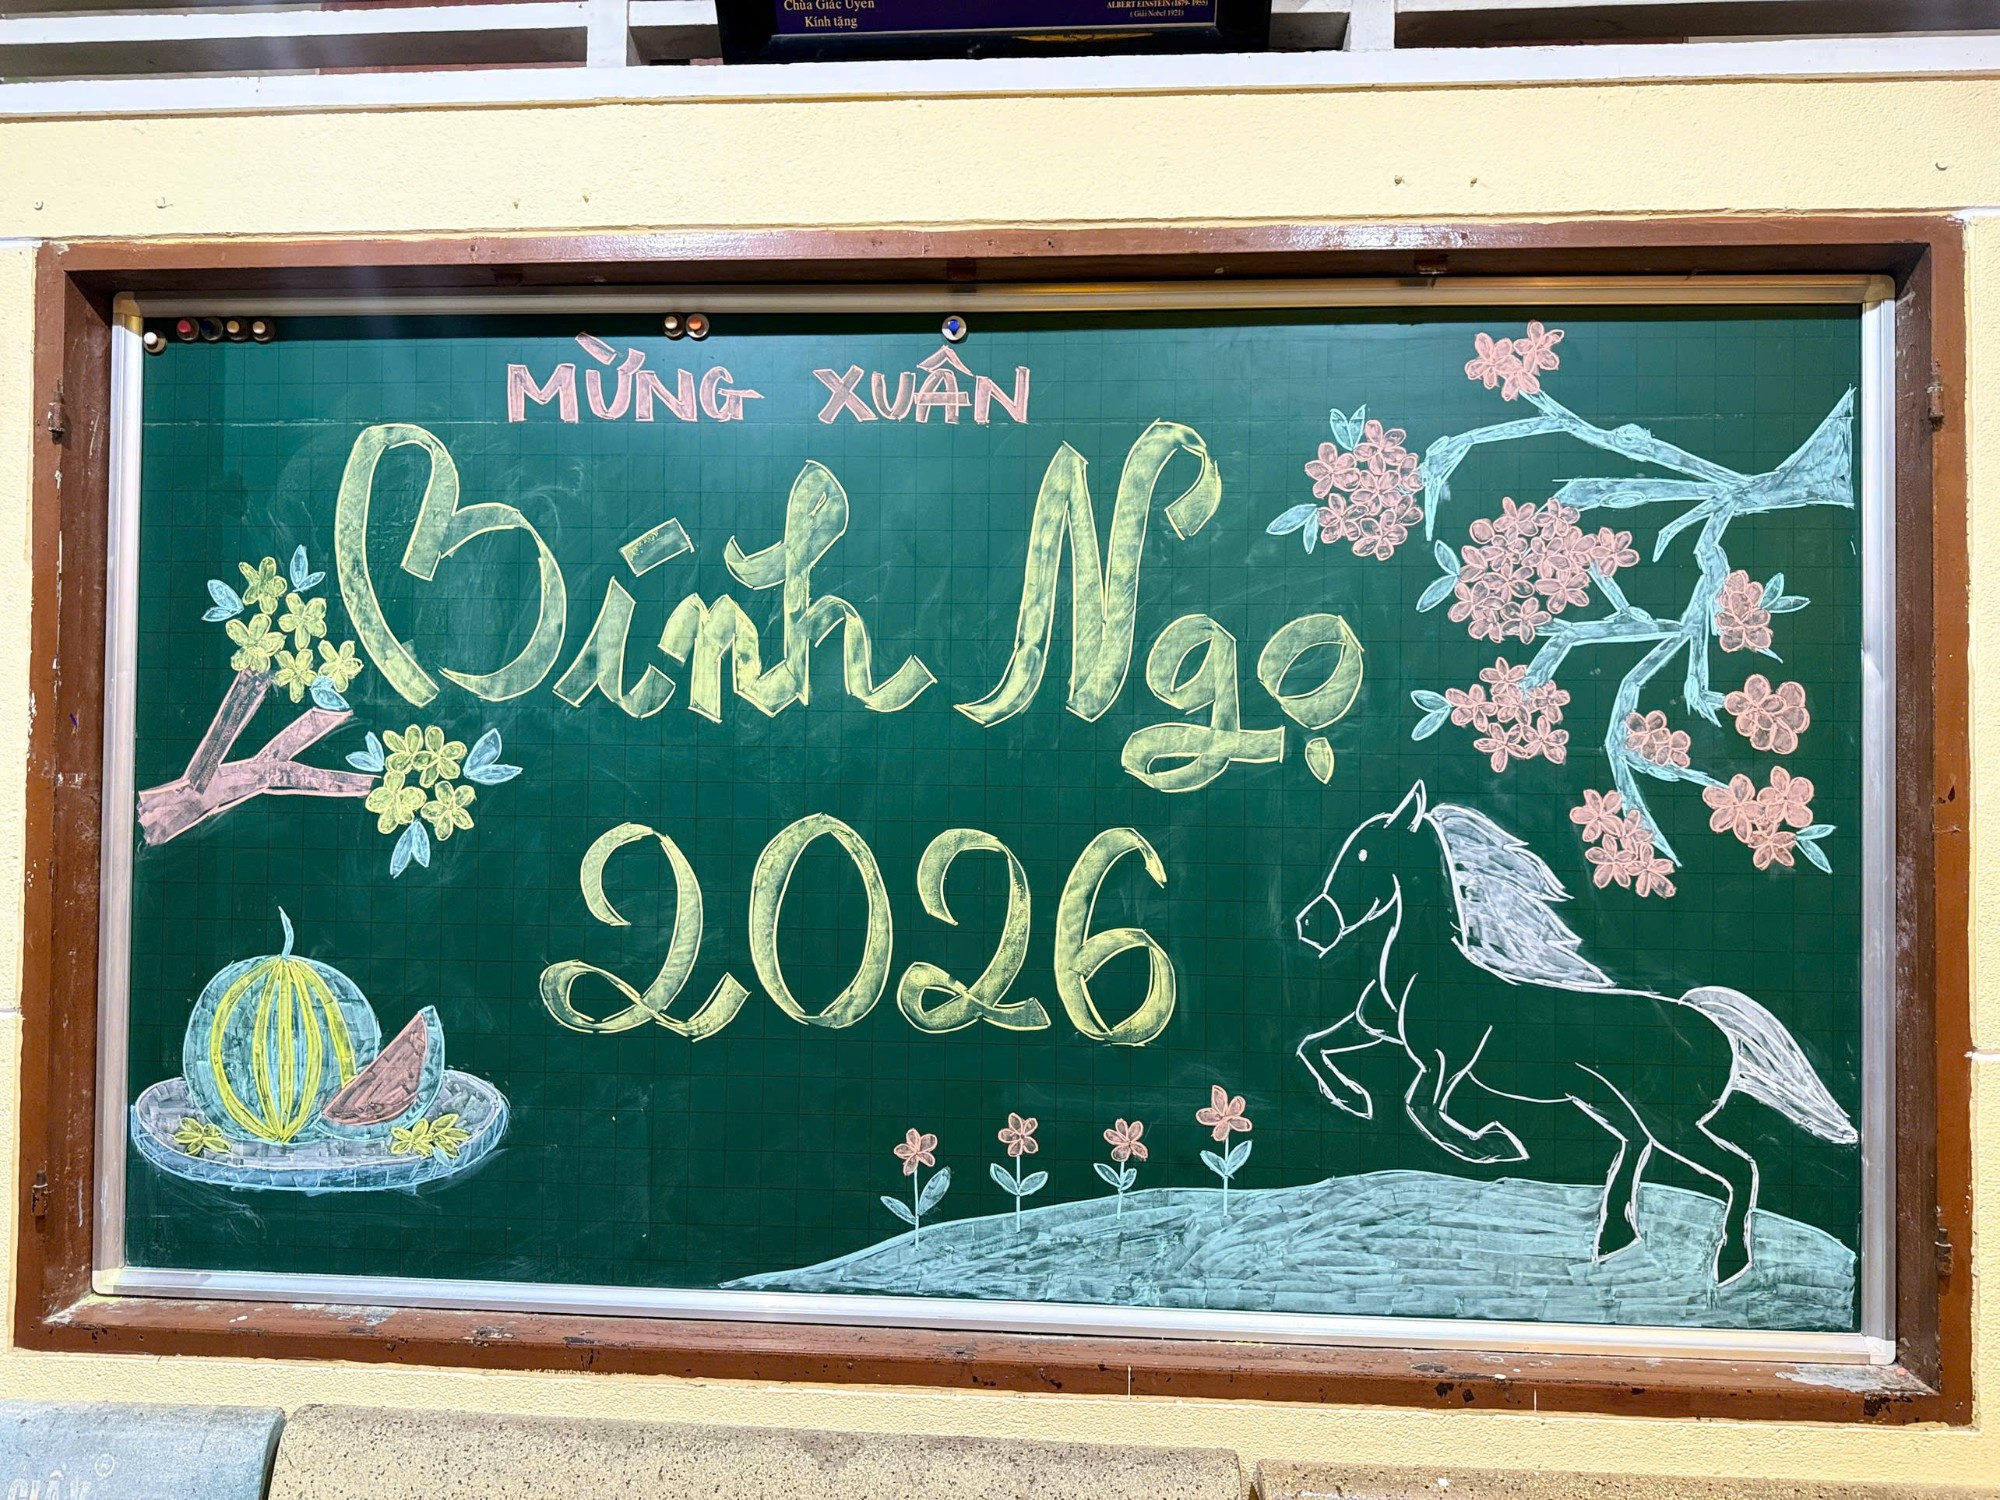 Chùa Giác Uyển
Kính tặng
ALBERT EINSTEIN (1879-1955)
(Giải Nobel 1921)
MỪNG XUÂN
Bính Ngọ
2026